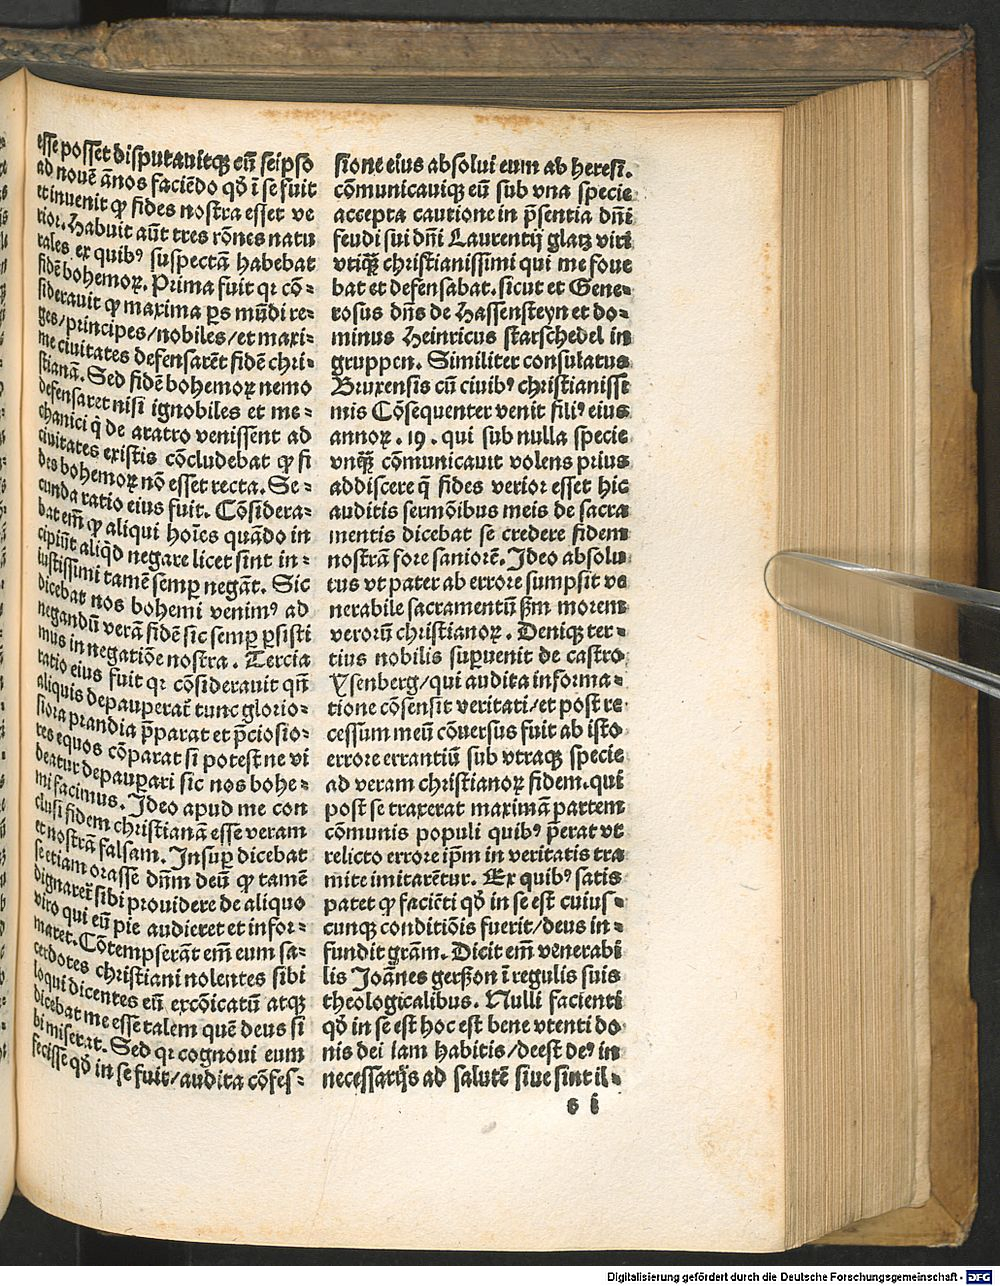 esse posset disputauitqꝫ cū seipso
ad nouē ānos faciēdo qd̄ ī se fuit
et inuenit ꝙ fides nostra esset ve
rior. Habuit aūt tres rōnes natu
rales ex quibꝰ suspectā habebat
fidē bohemoꝝ. Prima fuit qꝛ cō⸗
siderauit ꝙ maxima ꝑs mūdi re⸗
ges/principes/nobiles/et maxi⸗
me ciuitates defensarēt fidē chri⸗
stianā. Sed fidē bohemoꝝ nemo
defensaret nisi ignobiles et me⸗
chanici q̄ de aratro venissent ad
ciuitates existis cōcludebat ꝙ fi
des bohemoꝝ nō esset recta. Se⸗
cunda ratio eius fuit. Cōsidera⸗
bat em̄ ꝙ aliqui hoīes quādo in
cipiūt aliqd negare licet sint in⸗
iustissimi tamē semꝑ negāt. Sic
dicebat nos bohemi venimꝰ ad
negandū verā fidē sic semꝑ ꝑsisti
mus in negatiōe nostra. Tercia
ratio eius fuit qꝛ cōsiderauit qn̄
aliquis depauperat̄ tunc glorio⸗
siora prandia p̄parat et p̄ciosio⸗
res equos cōparat si potest ne vi
deatur depauꝑari sic nos bohe⸗
mi facimus. Ideo apud me con
clusi fidem christianā esse veram
et nostrā falsam. Insuꝑ dicebat
se etiam orasse dn̄m deū ꝙ tamē
dignaret̄ sibi prouidere de aliquo
viro qui eū pie audieret et infor⸗
maret. Cōtempserāt em̄ eum sa⸗
cerdotes christiani nolentes sibi
loqui dicentes eū excōicatū atqꝫ
dicebat me esse talem quē deus si
bi miserat. Sed qꝛ cognoui eum
fecisse qd̄ in se fuit/audita cōfes⸗
sione eius absolui eum ab heresi.
cōmunicauiqꝫ eū sub vna specie
accepta cautione in p̄sentia dn̄i
feudi sui dn̄i Laurentij glatz viri
vtiqꝫ christianissimi qui me foue
bat et defensabat. sicut et Gene⸗
rosus dn̄s de Hassensteyn et do⸗
minus Heinricus starschedel in
gruppen. Similiter consulatus
Bruxensis cū ciuibꝰ christianissi
mis Cōsequenter venit filiꝰ eius
annoꝝ .19. qui sub nulla specie
vnqꝫ̄ cōmunicauit volens prius
addiscere q̄ fides verior esset hic
auditis sermōibus meis de sacra
mentis dicebat se credere fidem
nostrā fore saniorē. Ideo absolu
tus vt pater ab errore sumpsit ve
nerabile sacramentū ẜm morem
verorū christianoꝝ. Deniqꝫ ter⸗
tius nobilis suꝑuenit de castro
Ysenberg/qui audita informa⸗
tione cōsensit veritati/et post re
cessum meū cōuersus fuit ab isto
errore errantiū sub vtraqꝫ specie
ad veram christianoꝝ fidem. qui
post se traxerat maximā partem
cōmunis populi quibꝰ p̄erat vt
relicto errore ip̄m in veritatis tra
mite imitarētur. Ex quibꝰ satis
patet ꝙ faciēti qd̄ in se est cuius⸗
cunqꝫ conditiōis fuerit/deus in⸗
fundit grām. Dicit em̄ venerabi
lis Joānes gerßon ī regulis suis
theologicalibus. Nulli facienti
qd̄ in se est hoc est bene vtenti do
nis dei iam habitis/deest deꝰ in
necessarijs ad salutē siue sint il⸗
s i
Digitalisierung gefördert durch die Deutsche Forschungsgemeinschaft - DFG